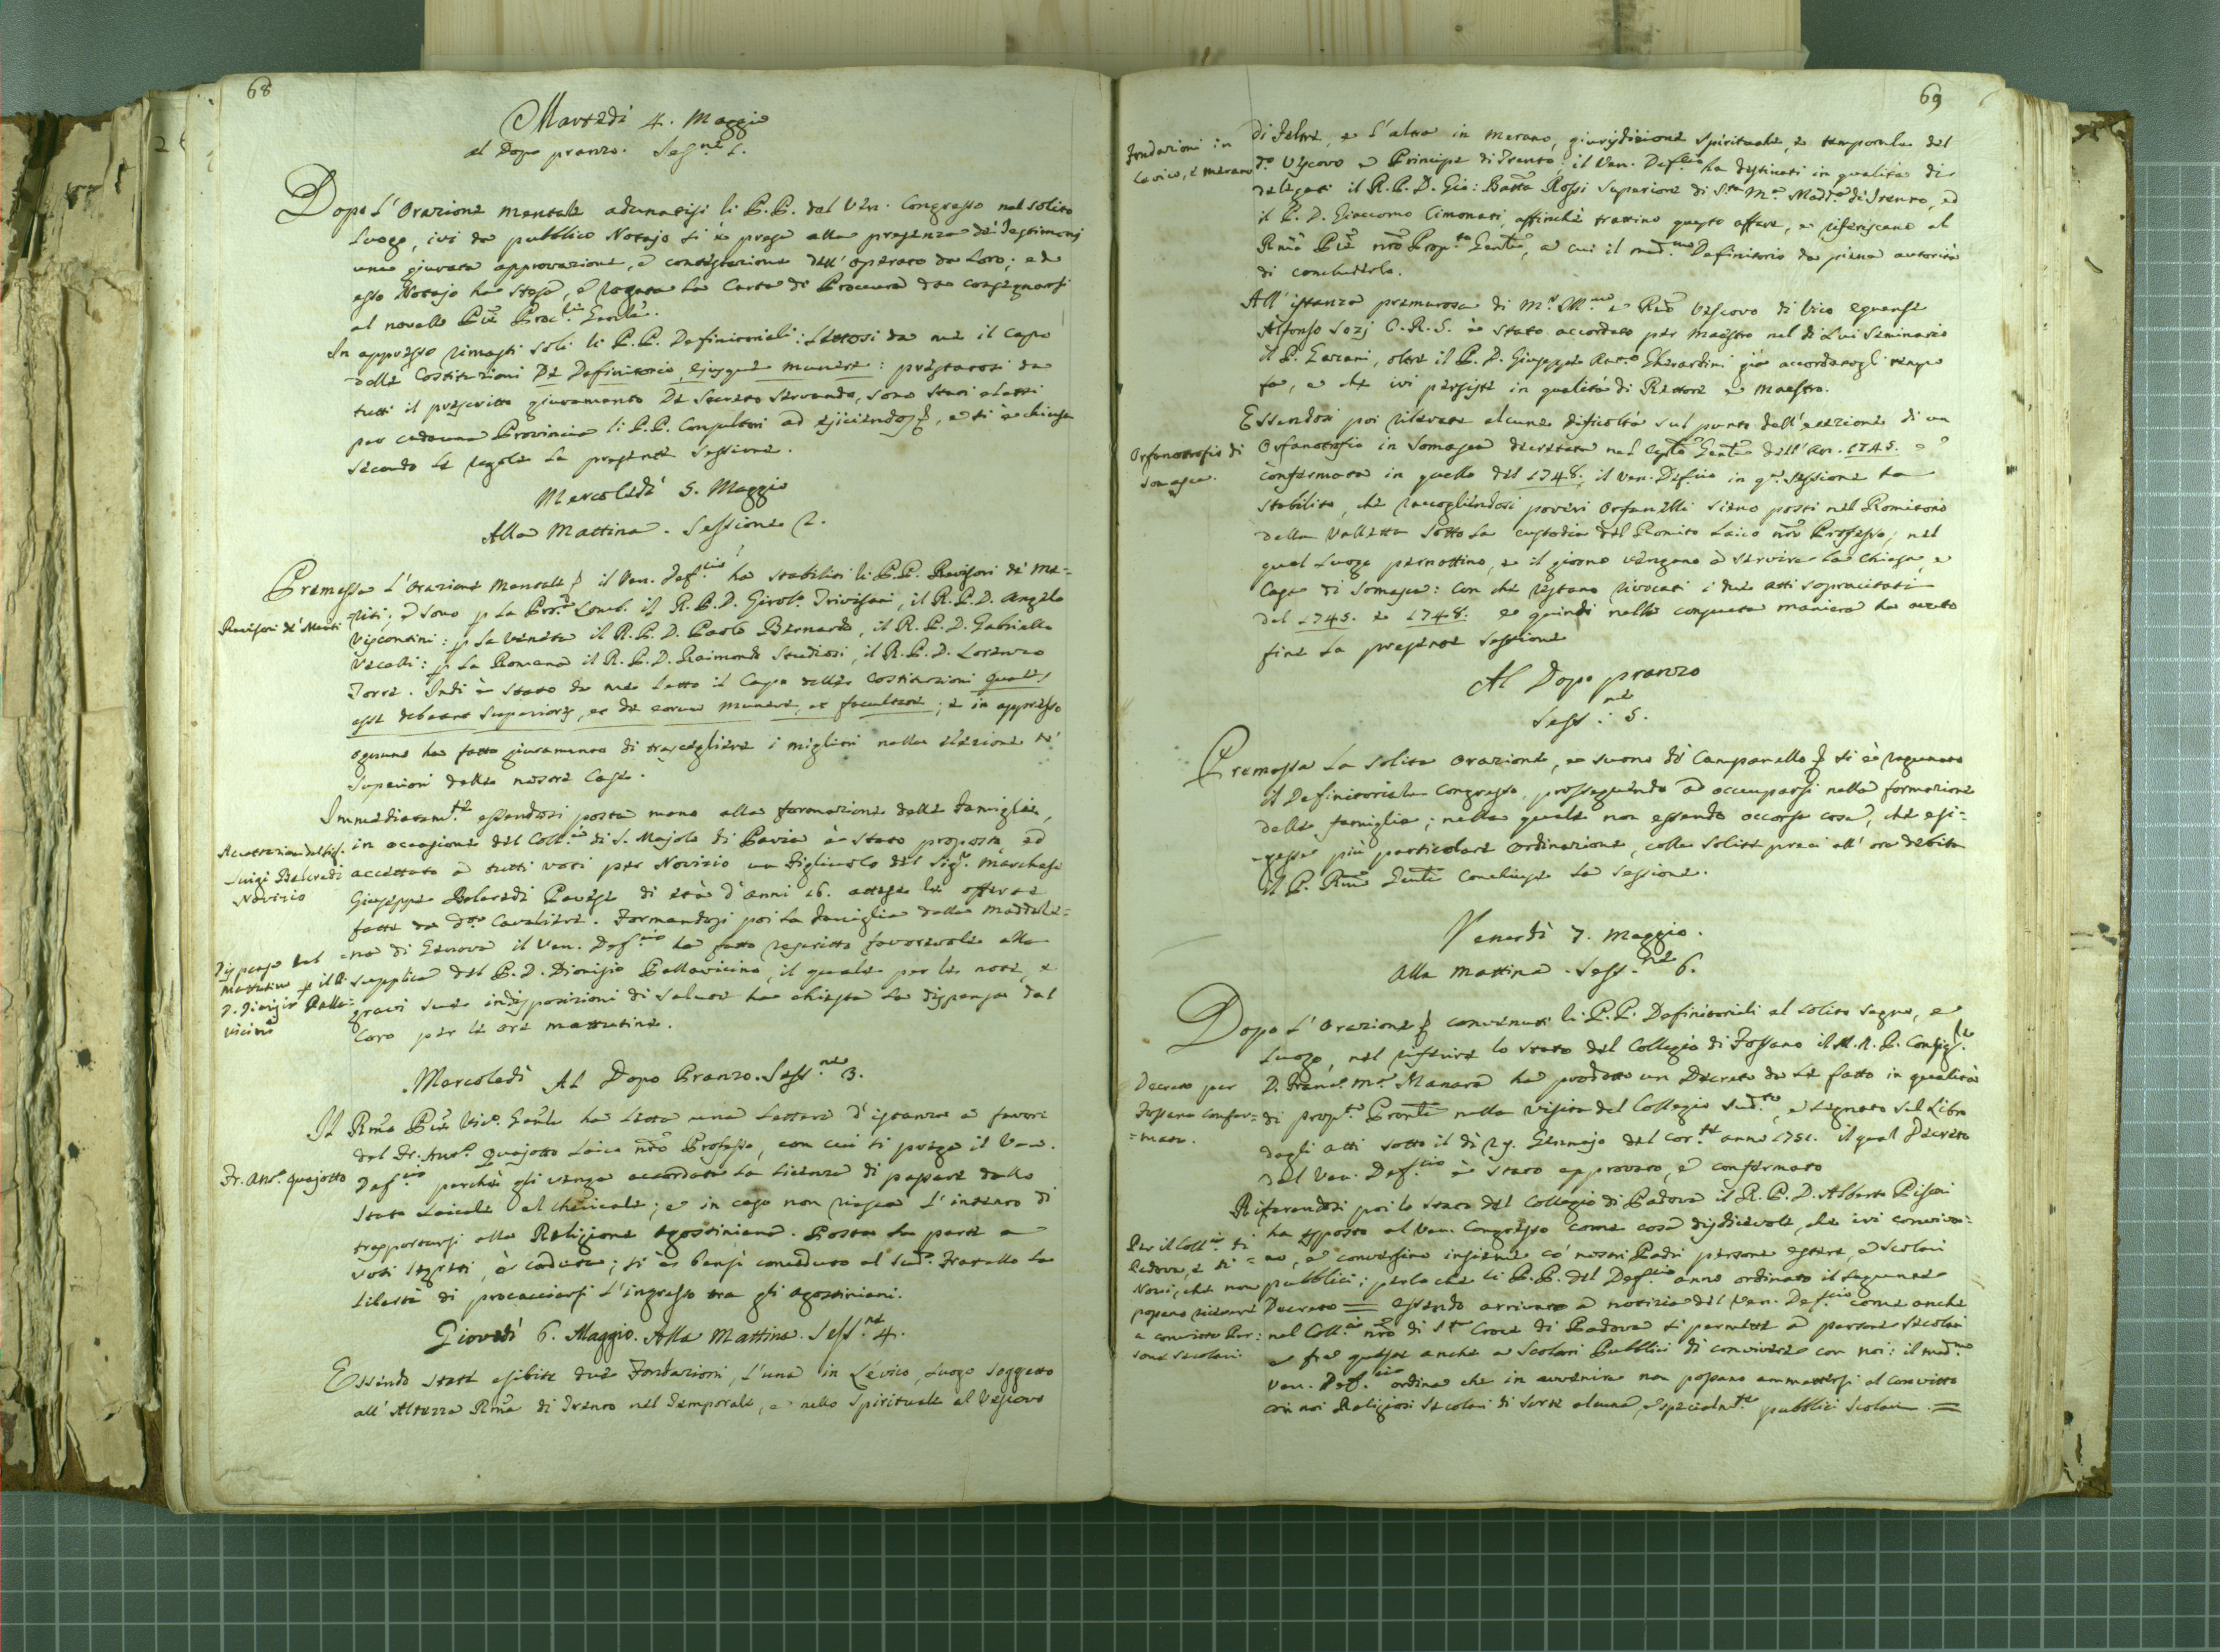 68
Martedì 4. Maggio
al Dopo pranzo. Ses.ne 1.
Dopo l'Orazione mentale adunatisi li P.P. del Ven. Congresso nel solito
luogo, ivi da pubblico Notajo si è preso alla presenza de' Testimonj
una giurata approvazione, e contestazione dell'operato da loro; ed
esso Notajo ha steso, e rogata la Carta di Procura da consegnarsi
al novello Pre Proc.re Genle.
In appresso rimasti soli li P.P. Definitoriali: lettosi da me il Capo
delle Costituzioni De Definitorio, ejusque munere: prestatosi da
tutti il prescritto giuramento De Secreto servando, sono stati eletti
per cadauna Provincia li P.P. Consultori ad ejiciendos, e si è chiusa
secondo le regole la presente sessione.
Mercoledì 5. Maggio
Alla Mattina. Sessione 2.
Premessa l'Orazione Mentale il Ven. Def.rio ha stabiliti li P.P. Revisori de' Me-
Revisori de' Meriti
riti; e sono p la Pro.a Lomb. il R.P.D. Girol.o Trivisani, il R.P.D. Angelo
Viscontini: p la Veneta il R.P.D. Paolo Bernardo, il R.P.D. Gabriello
Vecelli: p la Romana il R.P.D. Raimondo Studiosi, il R.P.D. Lorenzo
Torre. Indi è stato da me letto il Capo delle Costituzioni Quales
esse debeant Superiores, et de eorum munere, et facultate; e in appresso
ognuno ha fatto giuramento di trascegliere i migliori nella elezione de'
Superiori delle nostre Case.
Immediatam.te essendosi posta mano alla formazione delle Famiglie,
in occasione del Coll.o di S. Majolo di Pavia è stato proposto, ed
Accettazione del Sig.
Luigi Belcredi
Novizio
accettato a tutti voti per Novizio un Figliuolo del Sig.r Marchese
Giuseppe Belcredi Pavese di età d'anni 16. attese le offerte
fatte da d.o Cavaliere. Formandosi poi la Famiglia della Maddale-
na di Genova il Ven. Def.rio ha fatto rescritto favorevole alla
Dispensa dal
Mattutino p il P.
D. Dionigio Palla-
vicino
supplica del P.D. Dionigio Pallavicino, il quale per le note, e
gravi sue indisposizioni di salute ha chiesta la dispensa dal
Coro per le ore mattutine.
Mercoledì Al Dopo Pranzo. Sess.ne 3.
Il Rmo Pre Vic.o Genle ha letta una lettera d'istanza a favore
del Fr. Ant.o Quajotto Laico nro Professo, con cui si prega il Ven.
Fr. Ant.o Quajotto
Def.rio perchè gli venga accordata la licenza di passare dallo
stato Laicale al Chericale; e in caso non riesca l'intento di
trasportarsi alla Religione Agostiniana. Posta la parte a
voti segreti, è caduta; si è bensì conceduto al sud.o Fratello la
libertà di procacciarsi l'ingresso tra gli Agostiniani.
Giovedì 6. Maggio. Alla Mattina. Sess.ne 4.
Essendo state esibite due Fondazioni, l'una in Levico, luogo soggetto
all'Altezza Rma di Trento nel Temporale, e nello Spirituale al Vescovo
69
Fondazioni in
Levico, e Merano
di Feltre, e l'altra in Merano, giurisdizione spirituale, e temporale del
d.o Vescovo e Principe di Trento: il Ven. Def.rio ha destinati in qualità di
delegati il R.P.D. Gio: Batta Rossi Superiore di S.ta M.a Madd.a di Trento, ed
il P.D. Giaccomo Cimonati, affinchè trattino questo affare, e riferiscano al
Rmo Pre nro Prop.to Genle, a cui il med.mo Definitorio da piena autorità
di conchiuderlo.
All'istanza premurosa di M.r Ill.mo e Rmo Vescovo di Vico Equense
Alfonso Sozj C.R.S. è stato accordato per Maestro nel di lui Seminario
il P. Gazzani, oltre il P.D. Giuseppe Ant.o Gherardini già accordatogli tempo
fa, e che ivi persiste in qualità di Rettore e Maestro.
Essendosi poi rilevate alcune dificoltà sul punto dell'erezione di un
Orfanotrofio di
Somasca.
Orfanotrofio in Somasca decretata nel Capto Genle dell'An. 1745. e
confermata in quello del 1748. il Ven. Def.rio in q.a sessione ha
stabilito, che raccogliendosi poveri Orfanelli sieno posti nel Romitorio
della Valletta sotto la custodia del Romito Laico nro Professo; nel
qual luogo pernottino, e il giorno vengano a servire la Chiesa, e
Casa di Somasca: Con che restano rivocati i due atti sopracitati
del 1745. e 1748. e quindi nella consueta maniera ha avuto
fine la presente sessione
Al Dopo pranzo
Sess.ne 5.
Premessa la solita Orazione, e suono di Campanello si è ragunato
il Definitoriale Congresso, prosseguendo ad occuparsi nella formazione
delle famiglie; nella quale non essendo occorsa cosa, che esi-
gesse più particolare Ordinazione, colle solite preci all'ora debita
il P. Rmo Genle conchiuse la Sessione.
Venerdì 7. Maggio.
Alla Mattina. Sess.ne 6.
Dopo l'Orazione convenuti li P.P. Definitoriali al solito segno, e
luogo, nel riferire lo stato del Collegio di Fossano il M.R.P. Consigl.re
Decreto per
Fossano confer-
mato.
D. Franc.o M.a Manara ha prodotto un Decreto da lui fatto in qualità
di prop.to Pronle nella visita del Collegio sud.to, e segnato sul Libro
degli atti sotto il dì 29. Gennajo del cor.te anno 1751. il qual Decreto
dal Ven. Def.rio è stato approvato, e confermato
Riferendosi poi lo stato del Collegio di Padova il R.P.D. Alberto Pisani
ha esposto al Ven. Congresso come cosa disdicevole, che ivi conviva-
Per il Coll.o di
Padova, e di
Novi, che non
possano ricevere
a convitto Per-
sone secolari.
no, e conversino insieme co' nostri Padri persone estere, e scolari
pubblici; perlochè li P.P. del Def.rio anno ordinato il seguente
Decreto = essendo arrivato a notizia del Ven. Def.rio come anche
nel Coll.o nro di S.ta Croce di Padova si permette a persone secolari
e fra queste anche a scolari Pubblici di convivere con noi: il med.mo
Ven. Def.rio ordina che in avvenire non possano ammettersi al Convitto
con noi Religiosi secolari di sorte alcuna, e specialm.te pubblici scolari. =